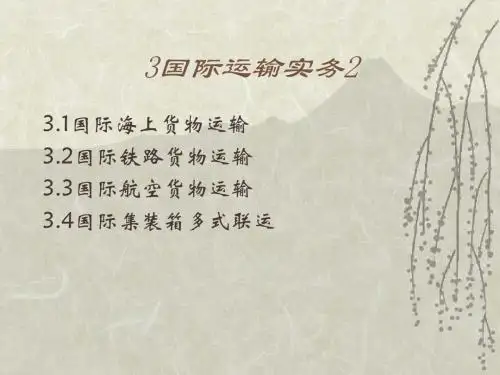 3国际运输实务2
3.1国际海上货物运输
3.2国际铁路货物运输
3.3国际航空货物运输
3.4国际集装箱多式联运